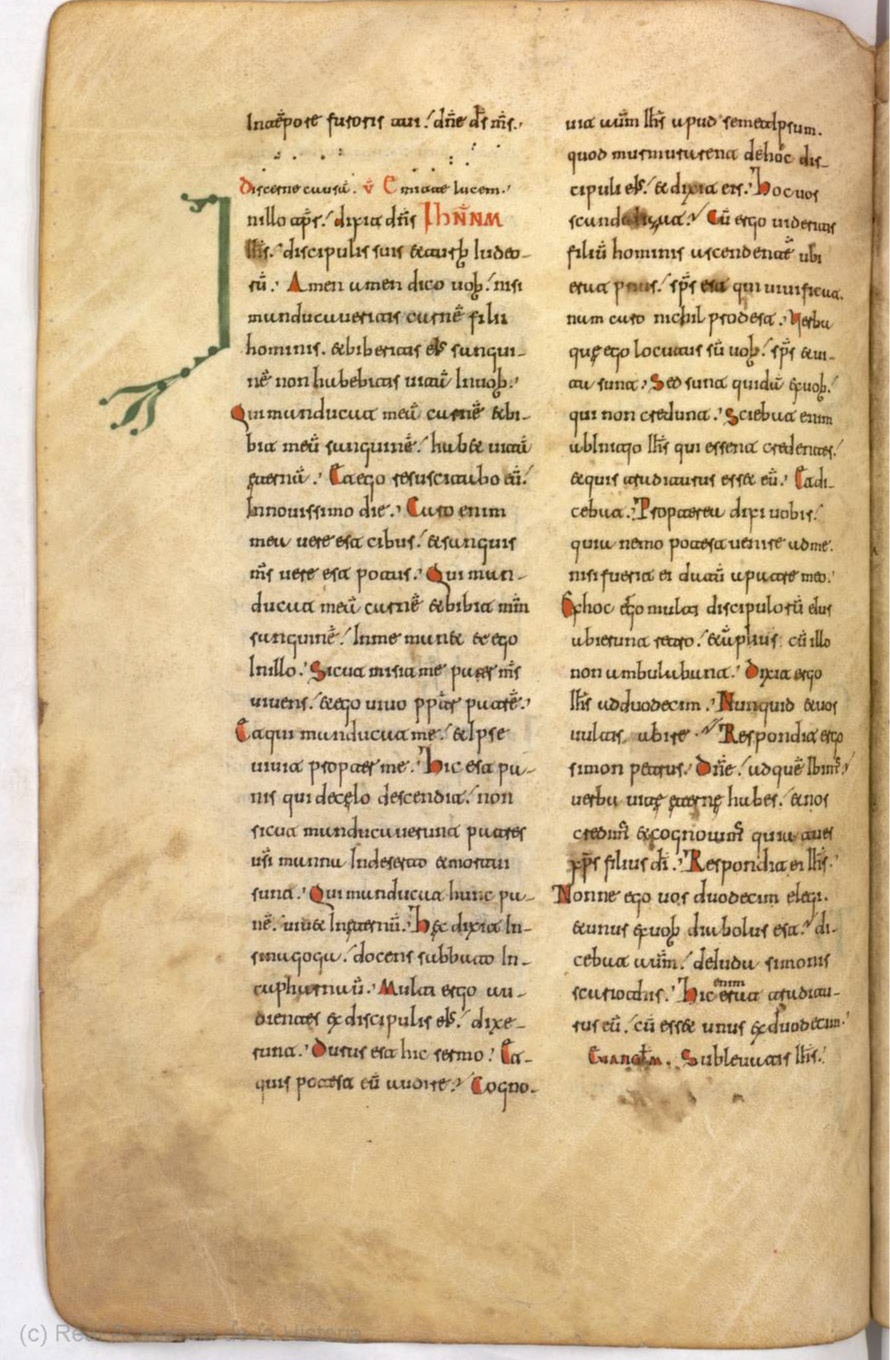 In tẽpore furoris tui. dñe ds ms.
Discerne causã. v̄ Emitte lucem.
n illo tp̄s. dixit dñs IHÑNM
Ihs̄. discipulis suis & turbis iudeo-
rū. Amen amen dico uob. nisi
manducaueritis carnē filii
hominis. & biberitis ei sangui-
nē non habebitis uitā In uob.
Qui manducat meā carnē & bi-
bit meū sanguinē. hab& uitā
ęternā. Et ego resuscitabo eū.
In nouissimo die. Caro enim
mea uere est cibus. & sanguis
ms̄ uere est potus. Qui man-
ducat meā carnē & bibit mm̄
sanguinē. In me man& et ego
In illo. Sicut misit me pater ms̄
uiuens. & ego uiuo pp̄ter patrē.
Et qui manducat me. & Ipse
uiuit propter me. Hic est pa-
nis qui de cęlo descendit. non
sicut manducauerunt patres
usī manna In deserto & mortui
sunt. Qui manducat hunc pa-
nē. uiu& In ęternū. Hęc dixit In
sinagoga. docens sabbato In
caphurnaū. Multi ergo au-
dientes ex discipulis eis. dixe-
runt. Durus est hic sermo. Et
quis potest eū audire. Cogno-
uit autm̄ Ihs̄ apud semetIpsum.
quod murmurarent de hoc dis-
cipuli eis. & dixit eis. Hoc uos
scandalizat. Cū ergo uideritis
filiū hominis ascendentē ubi
erat prius. sps̄ est qui uiuificat.
nam caro nichil prodest. Verba
quę ego locutus sū uob. sps̄ & ui-
ta sunt. Sed sunt quidā ex uob.
qui non credunt. Sciebat enim
ab Initio Ihs̄ qui essent credentes.
& quis traditurus ess& eū. Et di-
cebat. Propterea dixi uobis.
quia nemo potest uenire ad me.
nisi fuerit ei datū a patre meo.
Ex hoc ergo multi discipulorū eius
abierunt retro. & āplius cū illo
non ambulabant. Dixit ergo
Ihs̄ ad duodecim. Nunquid & uos
uultis abire. Respondit ergo
simon petrus. Dñe. ad quē Ibim̄.
uerba uitę ęternę habes. & nos
credim̄ & cognouim̄ quia tu es
xp̄s filius di. Respondit ei Ihs̄.
Nonne ego uos duodecim elegi.
& unus ex uob diabolus est. di-
cebat autm̄. de Iuda simonis
scariothis. Hic enim erat traditu-
rus eū. cū ess& unus ex duodecim.
Euangłm. Subleuatis Ihs̄.